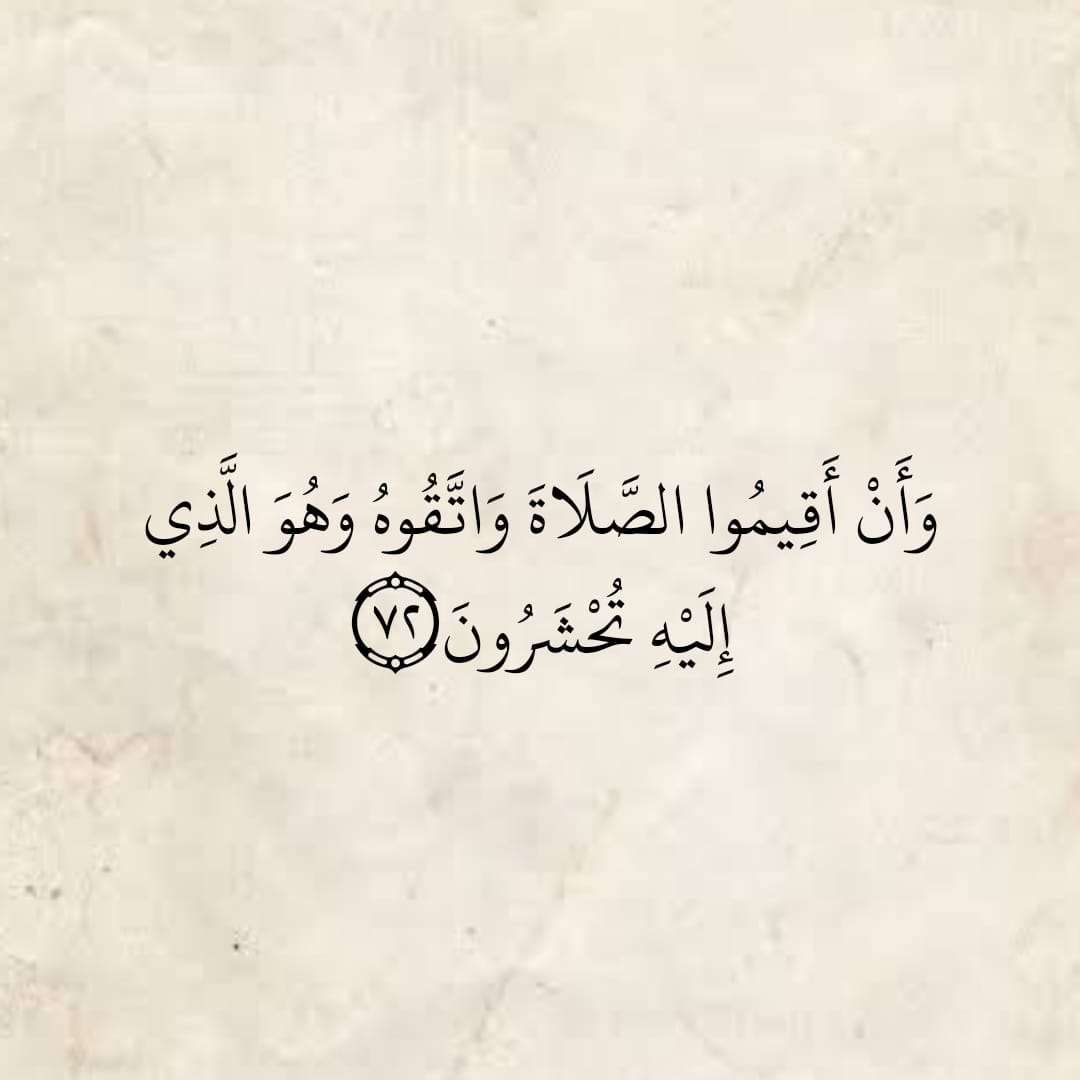 وَأَنْ أَقِيمُوا الصَّلَاةَ وَاتَّقُوهُ وَهُوَ الَّذِي
إِلَيْهِ تُحْشَرُونَ ٧٢